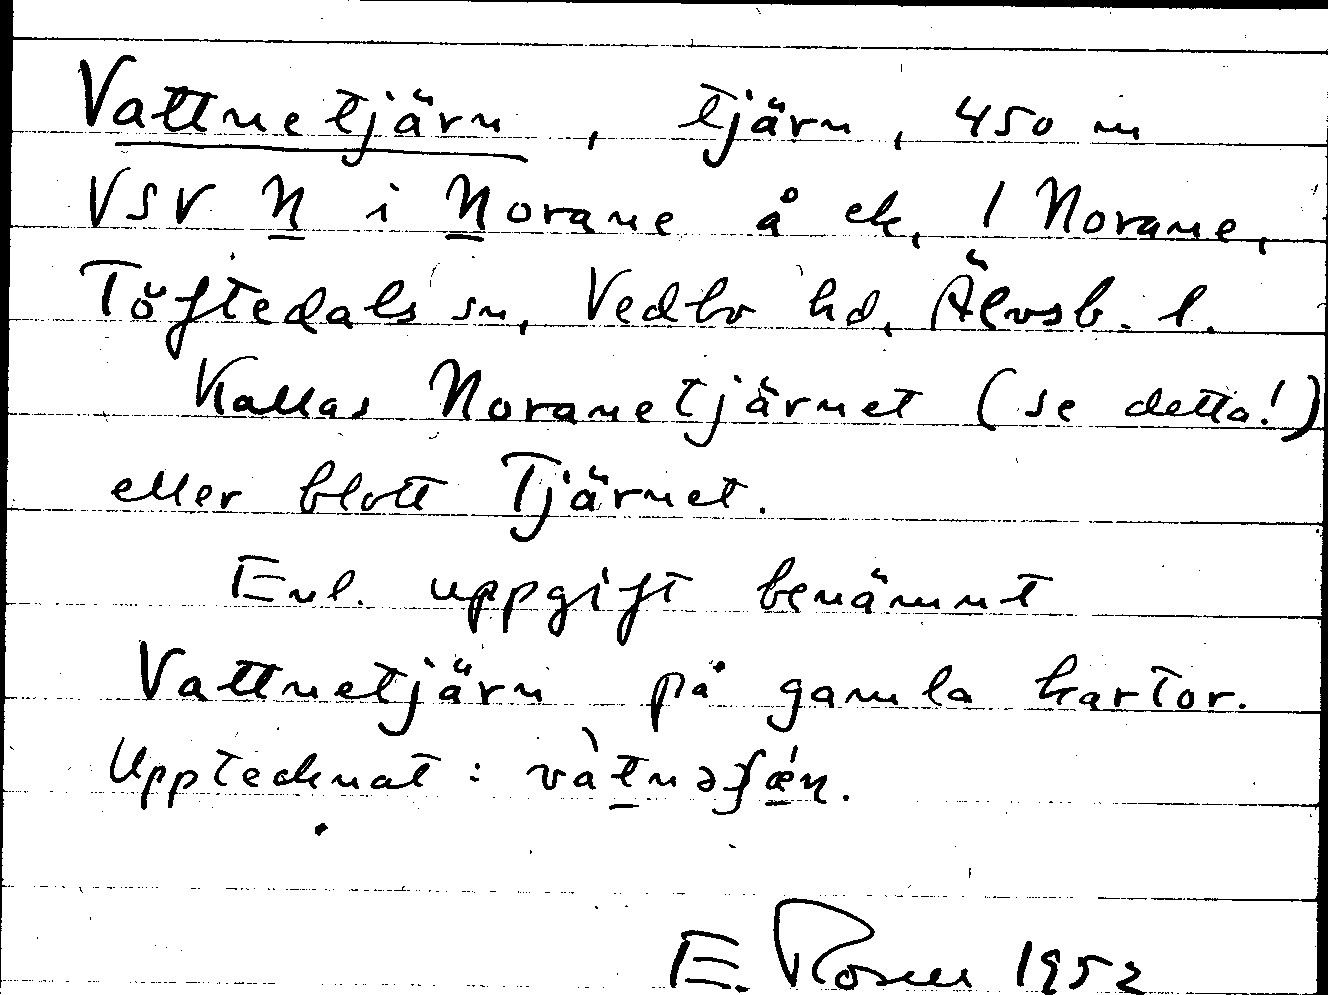 Vattnetjärn, tjärn, 450 m
VSV N i Norane å ek, 1 Norane,
Töftedals sn, Vedbo hd, Älvsb. l.
Kallas Noranetjärnet (se detta!)
eller blott Tjärnet.
Enl. uppgift benämnt
Vattnetjärn på gamla kartor.
Upptecknat:
E. Rosell 1952